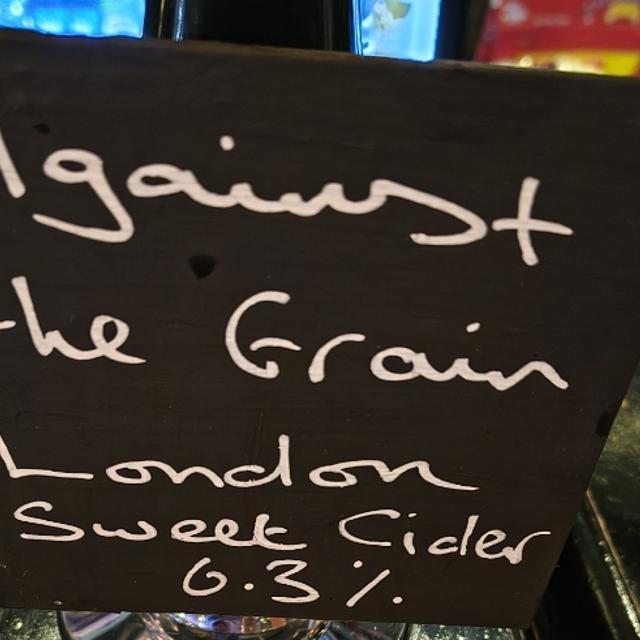 Against
the Grain
London
Sweet Cider
6.3%